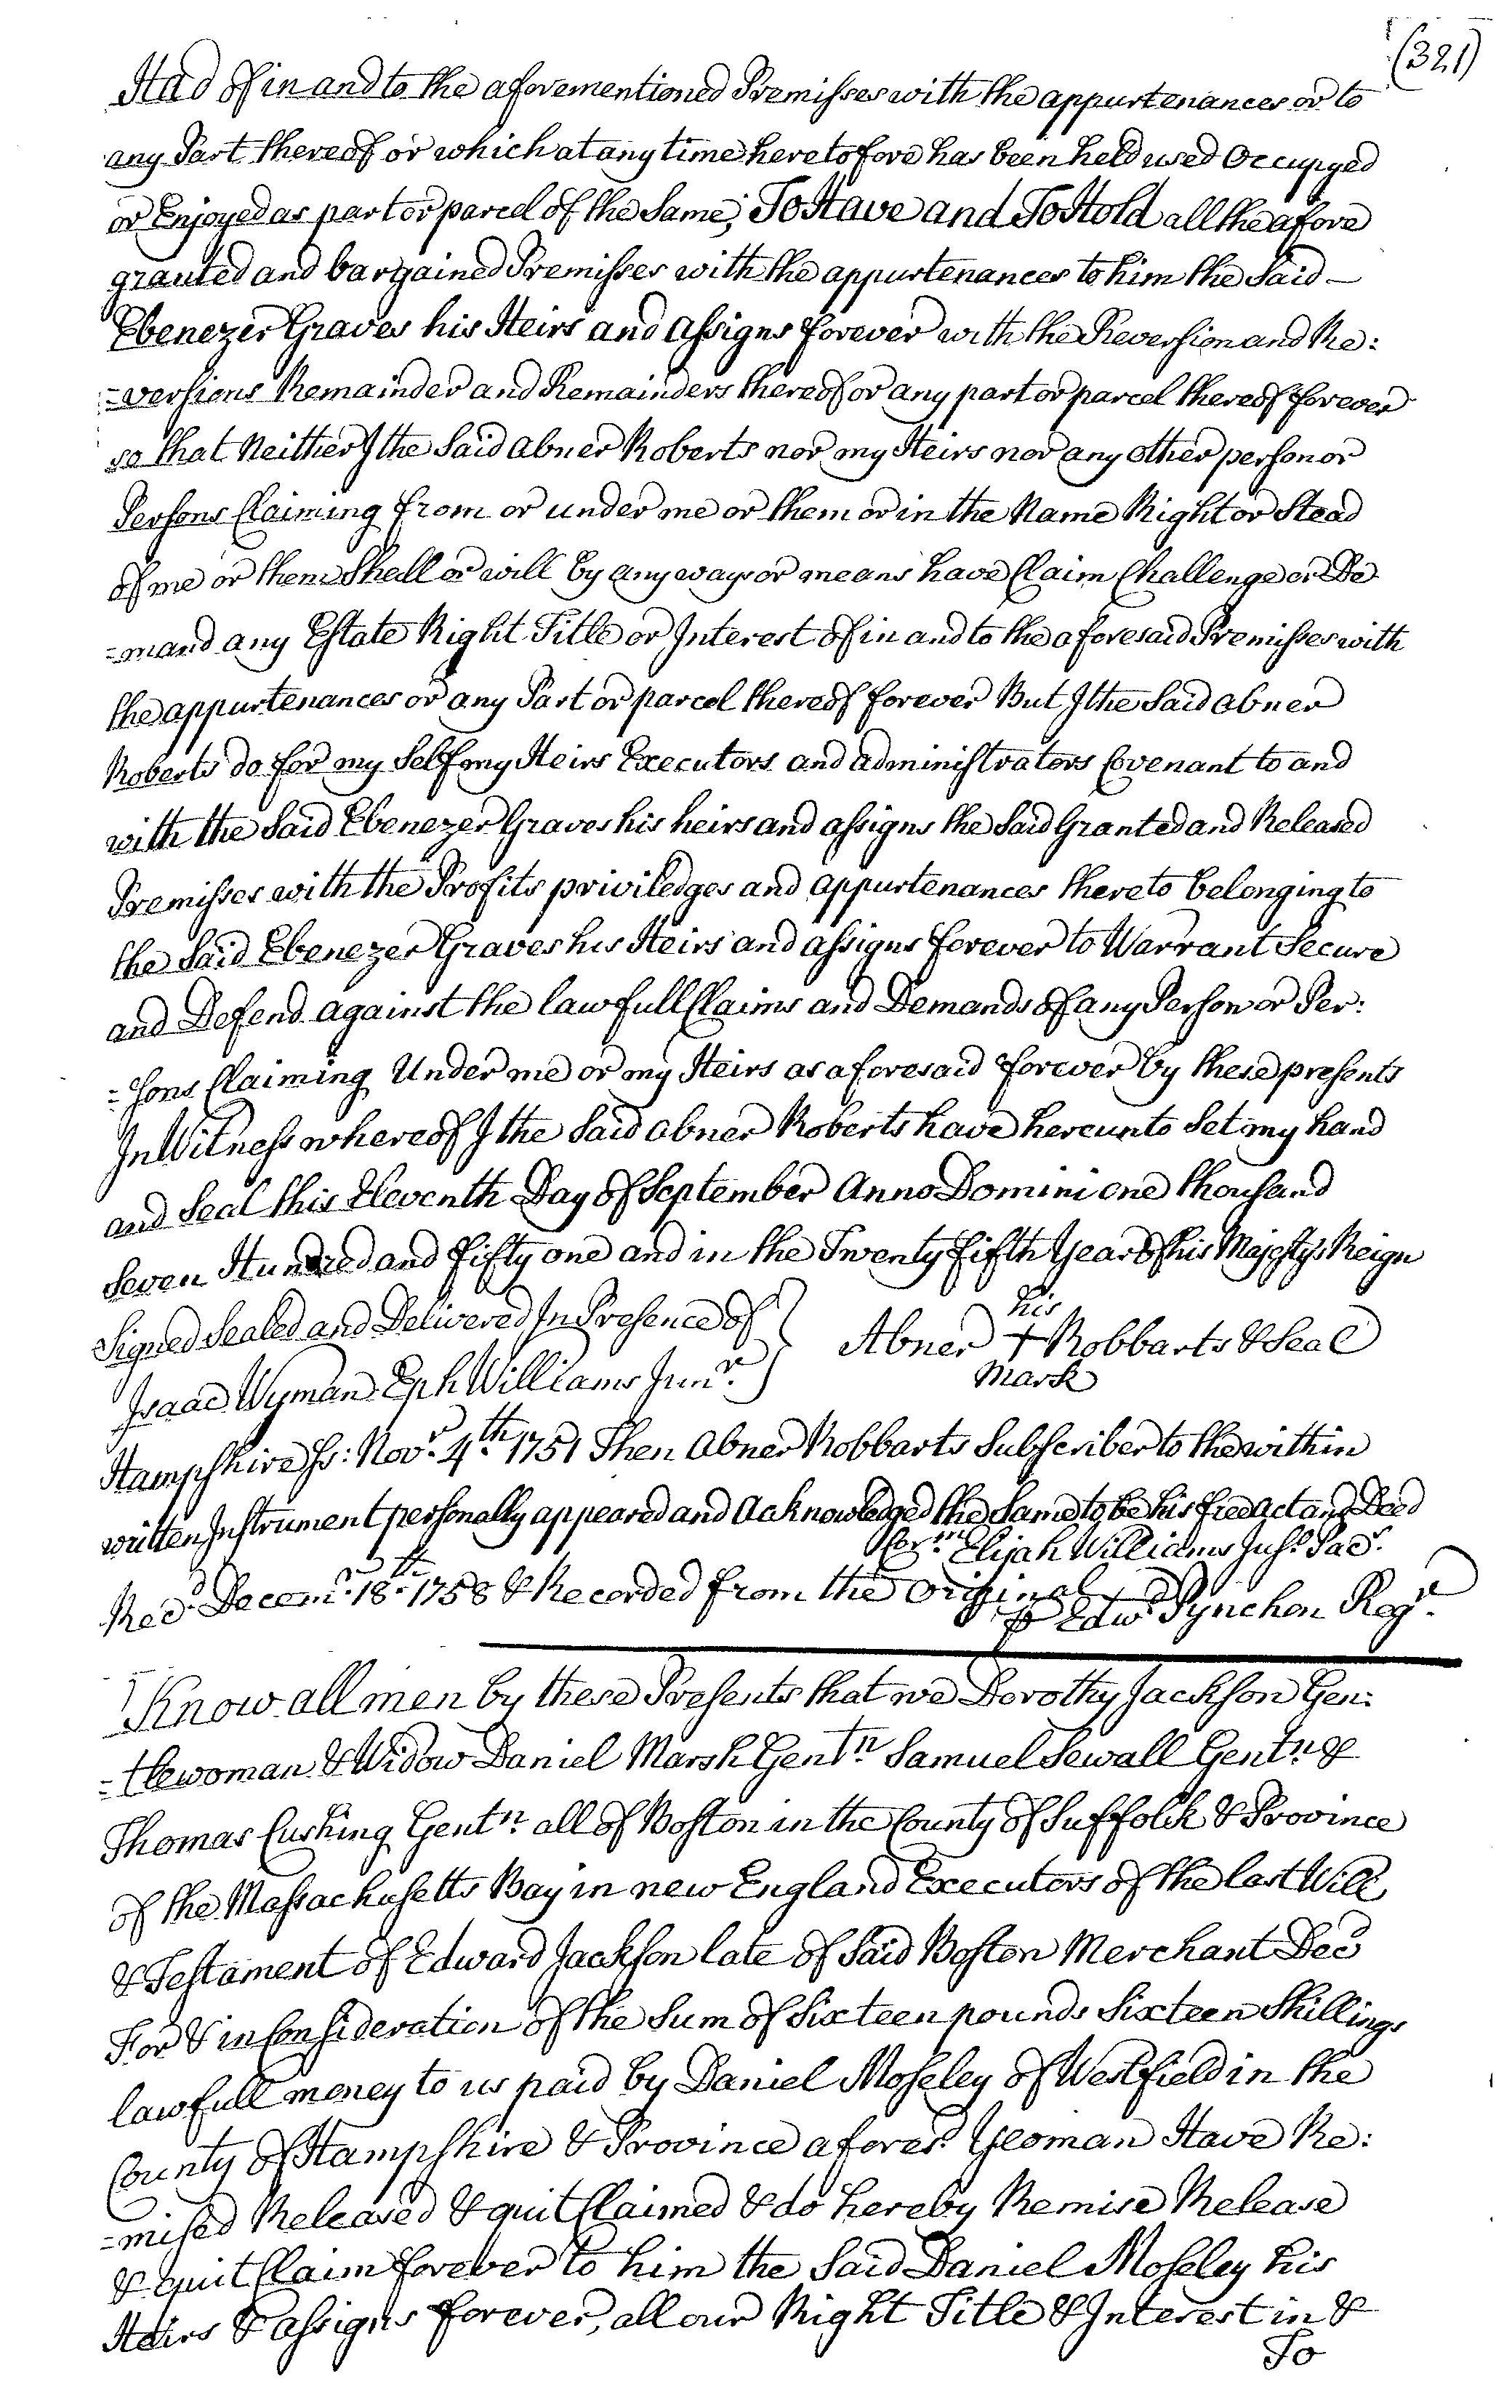 (321)
Had of in and to the aforementioned Premisses with the appurtenances or to
any Part thereof or which at any time heretofore has been held used Occupyed
or Enjoyed as part or parcel of the Same; To Have and To Hold all the afore
granted and bargained Premisses with the appurtenances to him the Said —
Ebenezer Graves his Heirs and Assigns forever with the Reversion and Re:
=versions Remainder and Remainders thereof or any part or parcel thereof forever
so that Neither I the Said Abner Roberts nor my Heirs nor any other person or
Persons Claiming from or under me or them or in the Name Right or Stead
of me or them Shall or will by any ways or means have Claim Challenge or De
=mand any Estate Right Title or Interest of in and to the aforesaid Premisses with
the appurtenances or any Part or parcel thereof forever But I the Said Abner
Roberts do for my Self my Heirs Executors and administrators Covenant to and
with the Said Ebenezer Graves his heirs and assigns the Said Granted and Released
Premisses with the Profits priviledges and appurtenances thereto belonging to
the Said Ebenezer Graves his Heirs and assigns forever to Warrant Secure
and Defend against the lawfull Claims and Demands of any Person or Per:
=sons Claiming Under me or my Heirs as aforesaid forever by these presents
In Witness whereof I the Said Abner Roberts have hereunto Set my hand
and Seal this Eleventh Day of September Anno Domini one thousand
Seven Hundred and fifty one and in the Twenty fifth Year of his Majestys Reign
Signed Sealed and Delivered In Presence of } his
Isaac Wyman Eph Williams Junr. } Abner + Robbarts & Seal
Mark
Hampshire Ss: Novr. 4th. 1751 Then Abner Robbarts Subscriber to the within
written Instrument personally appeared and Acknowledged the Same to be his free act and Deed
Corm. Elijah Williams Jusc. Pacs.
Recd. Decemr. 18th. 1758 & Recorded from the Original
⅌ Edwd. Pynchon Regr.
Know all men by these Presents that we Dorothy Jackson Gen:
=tlewoman & Widow Daniel Marsh Gentn Samuel Sewall Gentn. &
Thomas Cushing Gentn. all of Boston in the County of Suffolk & Province
of the Massachusetts Bay in new England Executors of the last Will
& Testament of Edward Jackson late of Said Boston Merchant Decd
For & in Consideration of the Sum of Sixteen pounds Sixteen Shillings
lawfull money to us paid by Daniel Moseley of Westfield in the
County of Hampshire & Province aforesd. Yeoman Have Re:
=mised Released & quit Claimed & do hereby Remise Release
& quit Claim forever to him the Said Daniel Moseley his
Heirs & assigns forever, all our Right Title & Interest in &
To